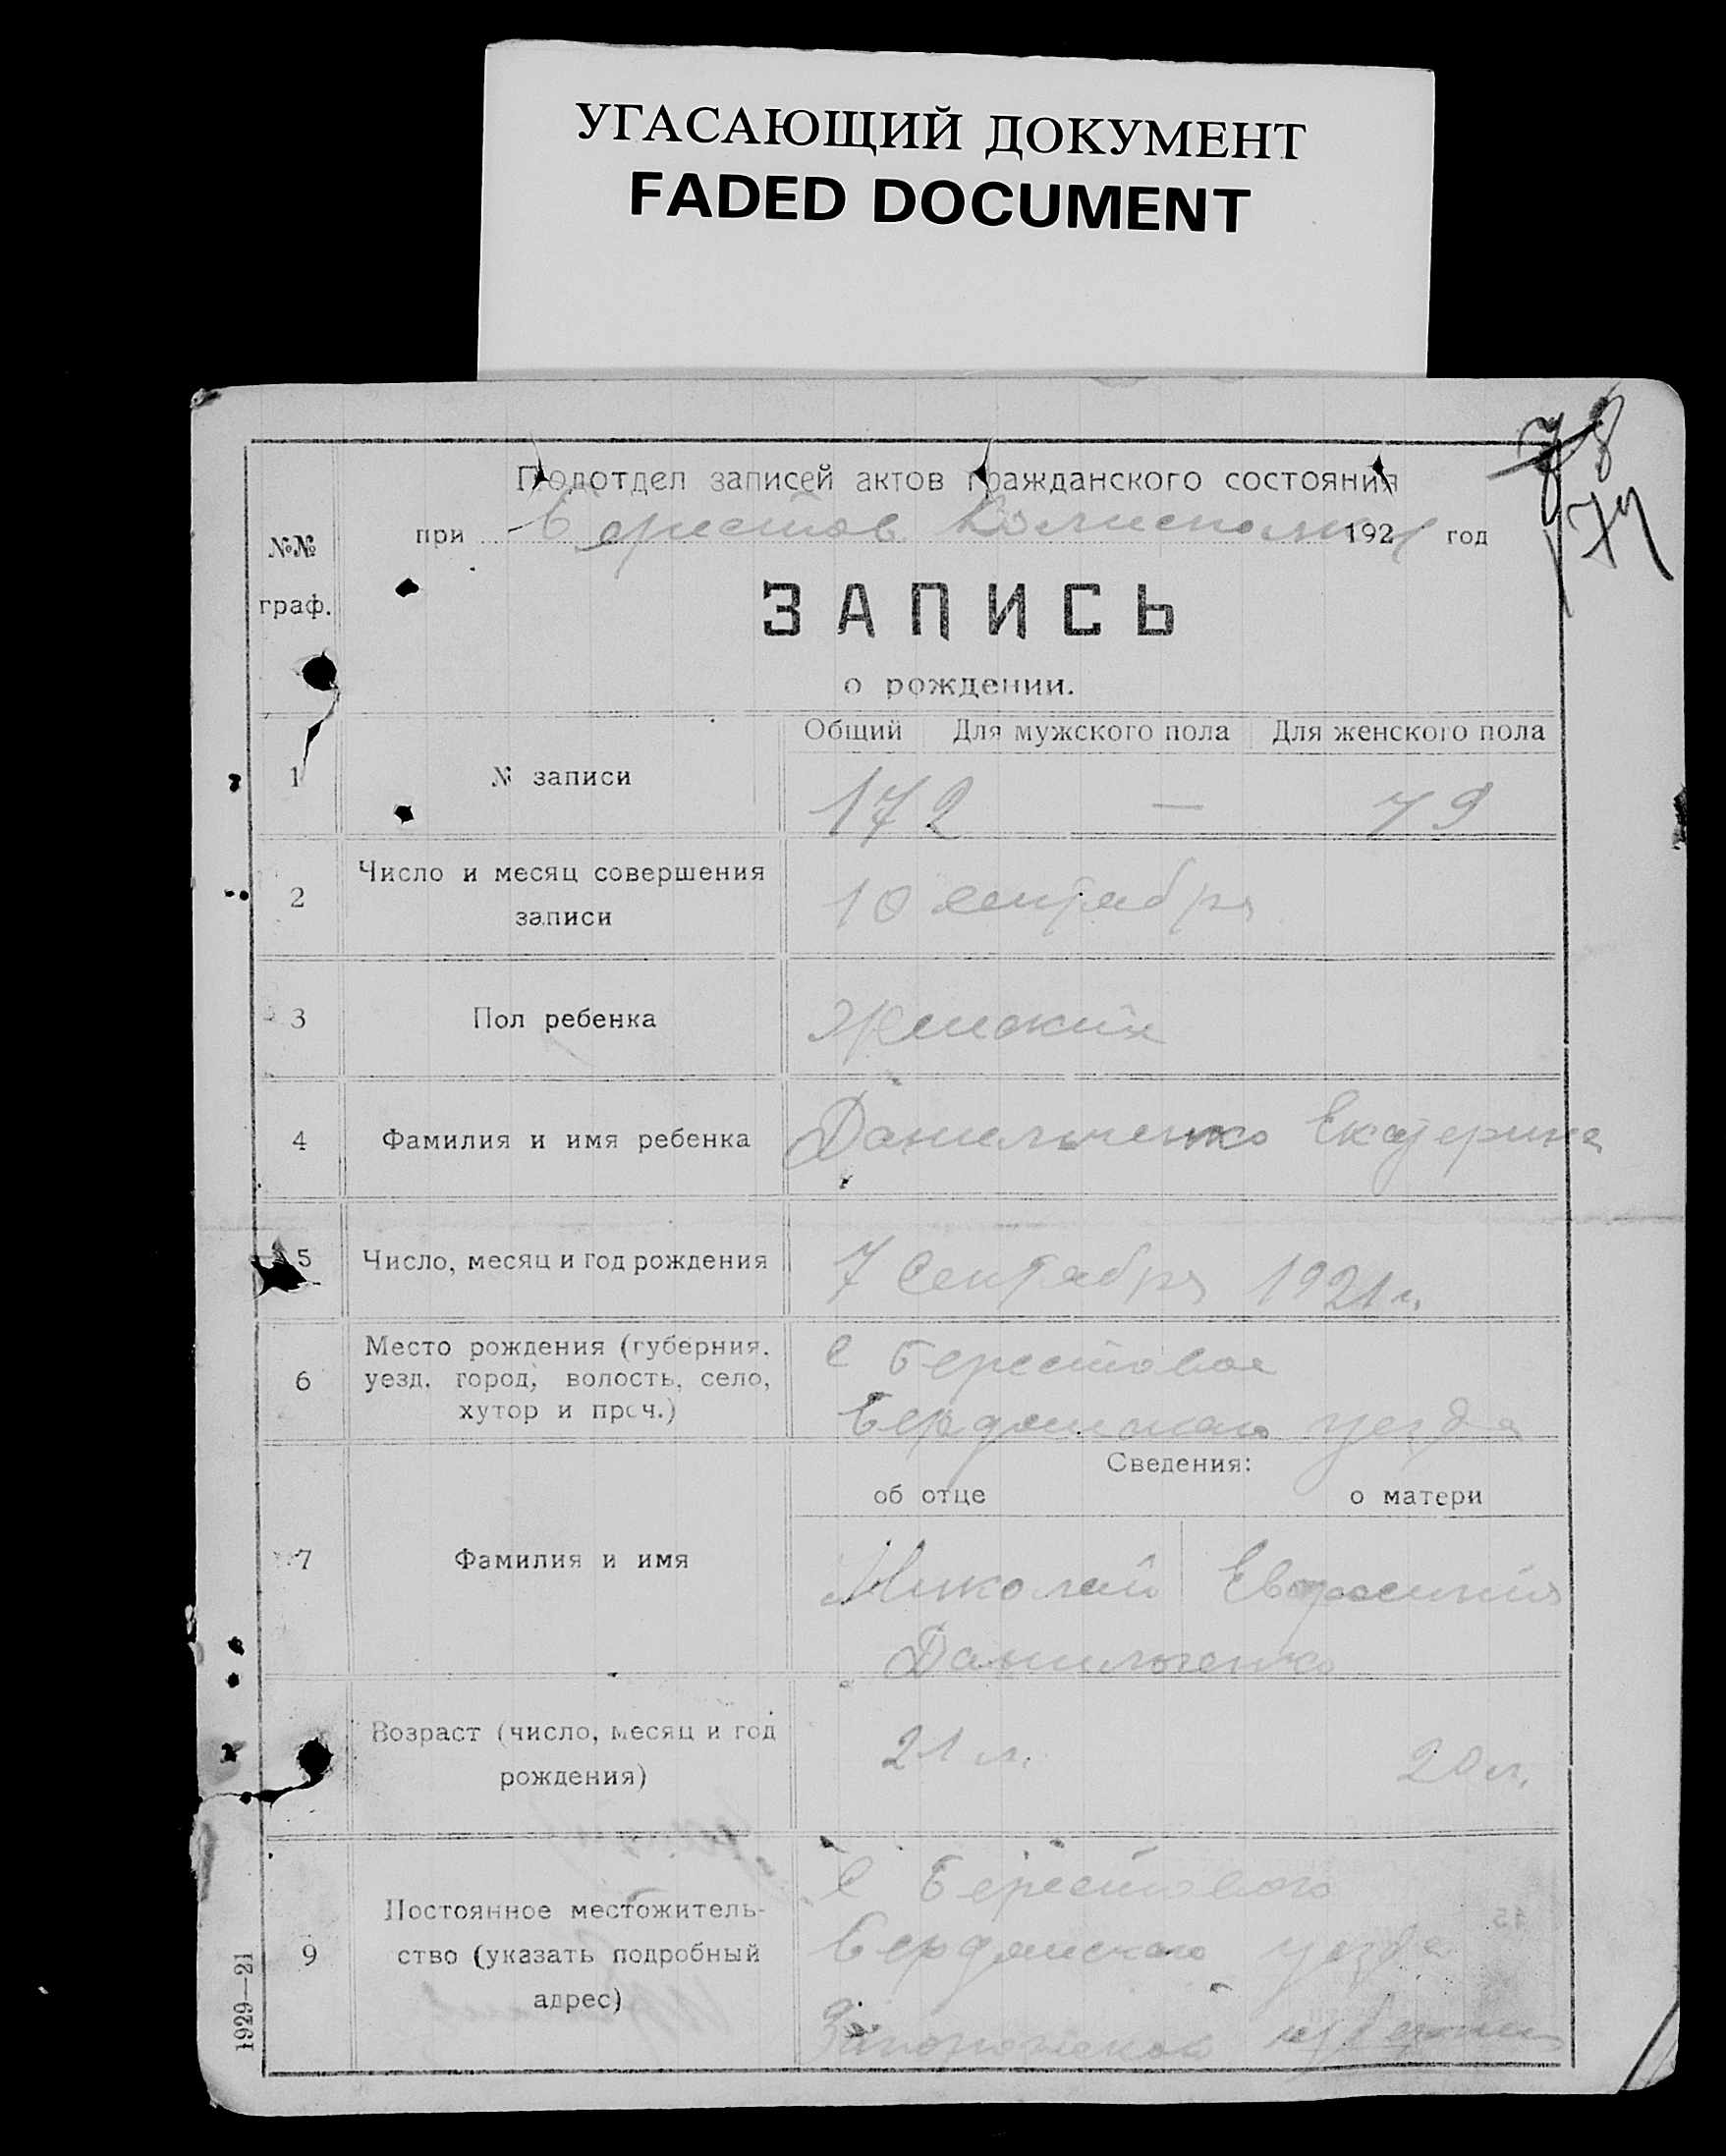 УГАСАЮЩИЙ ДОКУМЕНТ
FADED DOCUMENT
78
79
Подотдел записей актов гражданского состояния
при Берестов Волисполк 1921 год
№№
граф.
ЗАПИСЬ
о рождении.
Общий Для мужского пола Для женского пола
1 № записи 172 — 79
2 Число и месяц совершения
записи 10 сентября
3 Пол ребенка Женский
4 Фамилия и имя ребенка Данильченко Екатерина
5 Число, месяц и год рождения 7 Сентября 1921 г.
6 Место рождения (губерния, с Берестовое
уезд, город, волость, село,
хутор и проч.) Бердянского уезда
Сведения:
об отце о матери
7 Фамилия и имя Николай Евфросиния
Данильченко
Возраст (число, месяц и год
рождения) 21 л. 20 л.
с Берестового
9 Постоянное местожитель-
ство (указать подробный Бердянского уезда
адрес) Запорожской губернии
1929—21